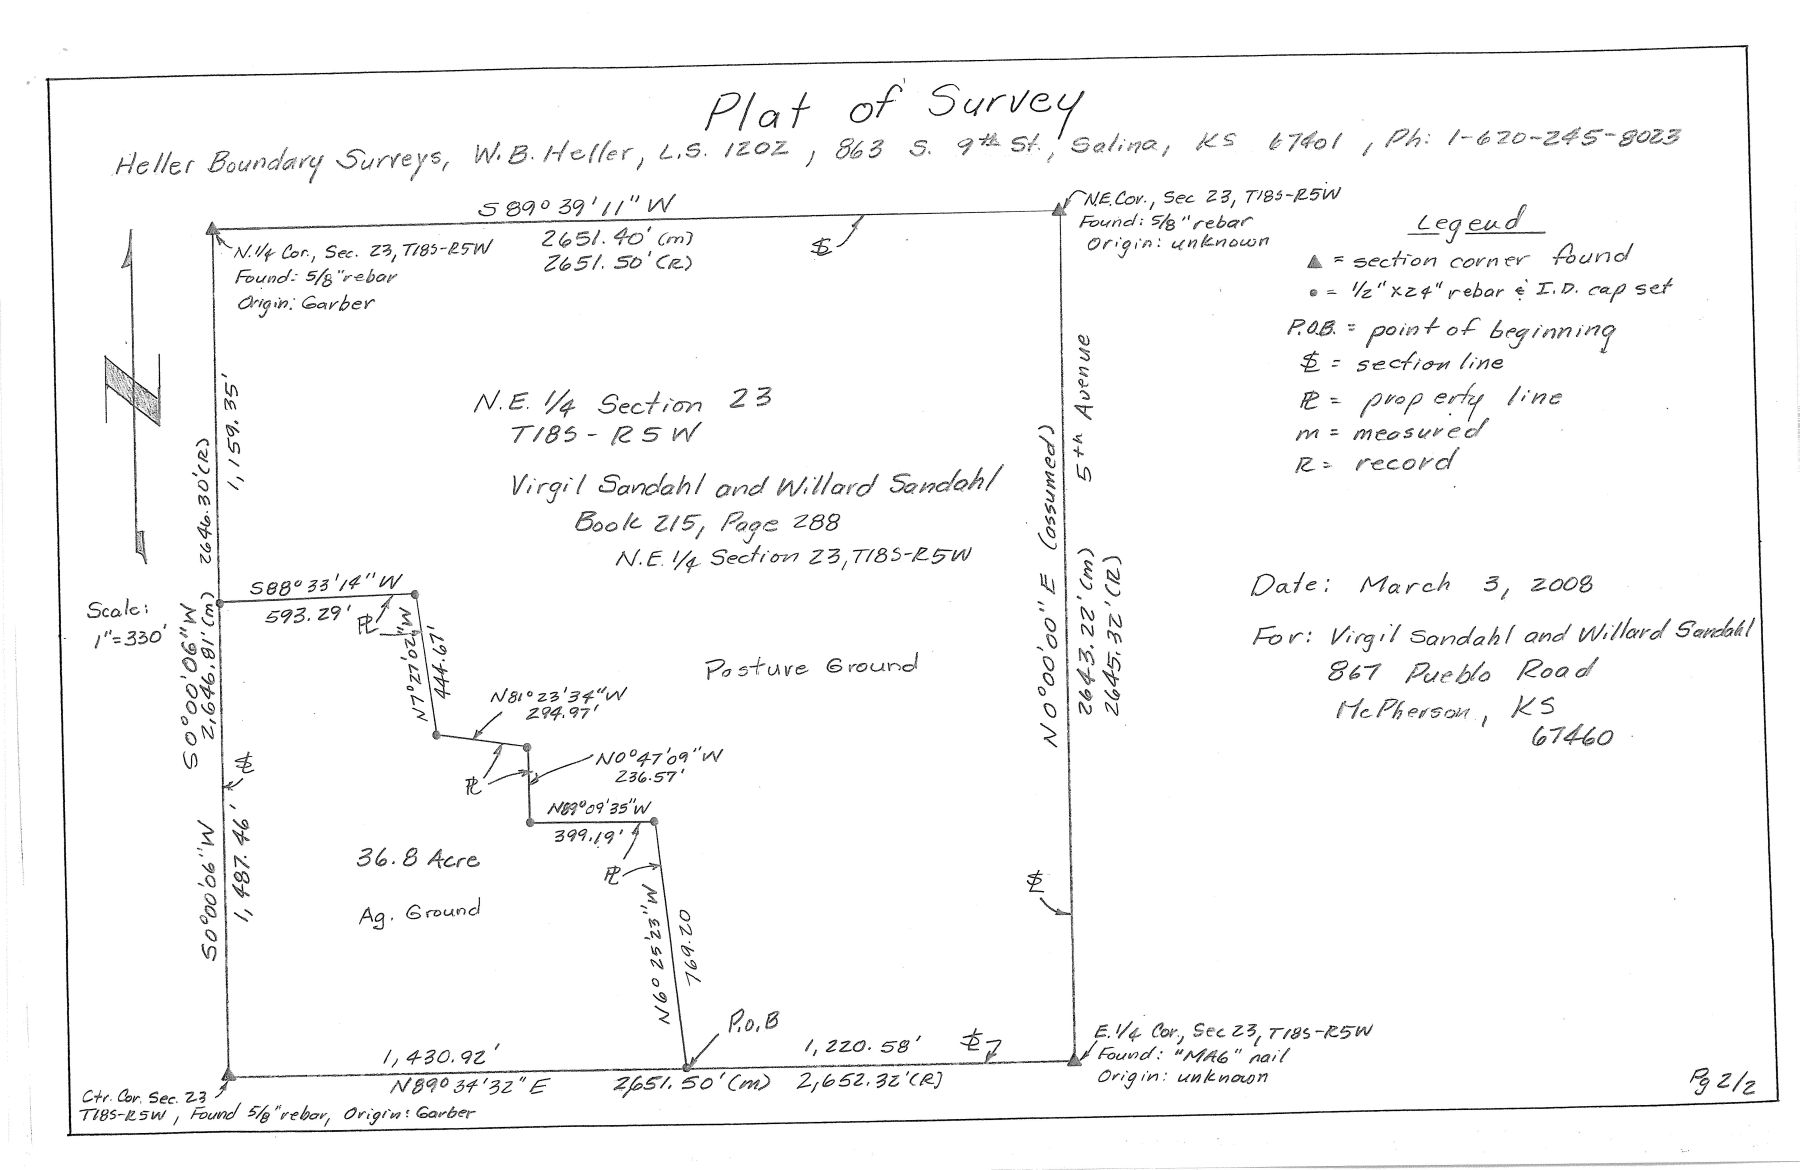 Plat of Survey
Heller Boundary Surveys, W.B. Heller, L.S. 1202, 863 S. 9th St., Salina, KS 67401, Ph: 1-620-245-8023
S 89° 39' 11" W
2651.40' (m)
2651.50' (R)
N. 1/4 Cor., Sec. 23, T18S-R5W
Found: 5/8" rebar
Origin: Garber
N.E. Cor., Sec 23, T18S-R5W
Found: 5/8" rebar
Origin: unknown
Legend
▲ = section corner found
• = 1/2" x 24" rebar & I.D. cap set
P.O.B. = point of beginning
SL = section line
PL = property line
m = measured
R = record
N.E. 1/4 Section 23
T18S - R5W
Virgil Sandahl and Willard Sandahl
Book 215, Page 288
N.E. 1/4 Section 23, T18S-R5W
1,159.35'
S 0° 00' 06" W
2,646.81' (m) 2646.30' (R)
5th Avenue
N 0° 00' 00" E (assumed)
2643.22' (m)
2645.32' (R)
Scale:
1" = 330'
S88° 33' 14" W
593.29'
PL
N7° 27' 02" W
444.67'
N81° 23' 34" W
294.97'
PL
N0° 47' 09" W
236.57'
N89° 09' 35" W
399.19'
PL
N6° 25' 23" W
769.20
Posture Ground
Date: March 3, 2008
For: Virgil Sandahl and Willard Sandahl
867 Pueblo Road
McPherson, KS
67460
SL
S0° 00' 06" W
1,487.46'
36.8 Acre
Ag. Ground
SL
SL
P.O.B
1,430.92'
N89° 34' 32" E
1,220.58'
SL
2,651.50' (m) 2,652.32' (R)
E. 1/4 Cor., Sec 23, T18S-R5W
Found: "MAG" nail
Origin: unknown
Ctr. Cor. Sec. 23
T18S-R5W, Found 5/8" rebar, Origin: Garber
Pg 2/2